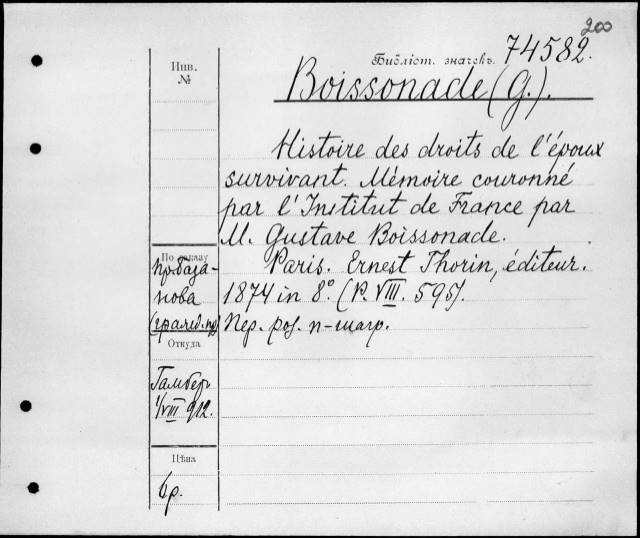 200
Библіот. значекъ. 74582.
Инв.
№
Boissonade (G.).
Histoire des droits de l'époux
survivant. Mémoire couronné
par l'Institut de France par
M. Gustave Boissonade.
Paris. Ernest Thorin, éditeur.
1874 in 8°. (P. VIII. 595).
Пер. рог. п-шагр.
По заказу
пр. база-
нова
Откуда
Гамбер
1/VIII 912.
Цѣна
6р.